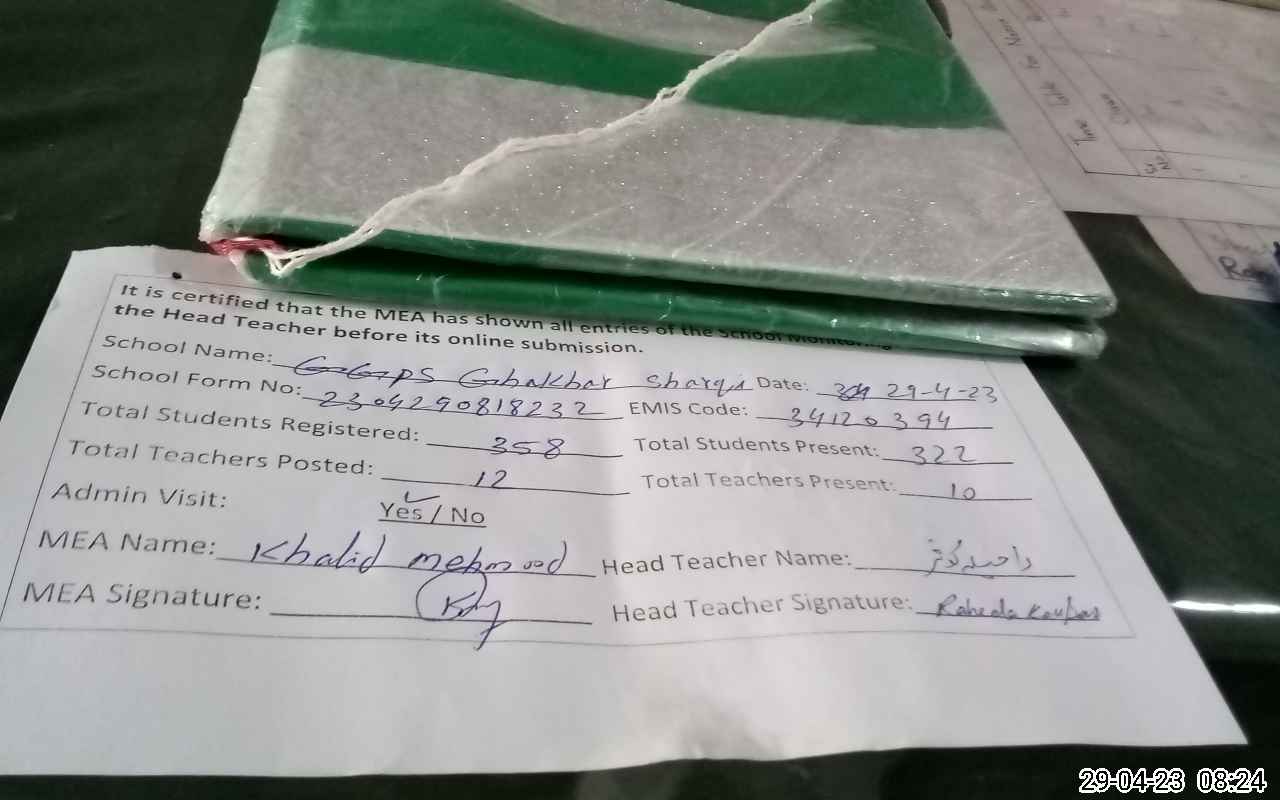 It is certified that the MEA has shown all entries of the School Monitoring
the Head Teacher before its online submission.
School Name: GGPS Gbakhar Sharqi Date: 29-4-23
School Form No: 2304290818232 EMIS Code: 34120394
Total Students Registered: 358 Total Students Present: 322
Total Teachers Posted: 12 Total Teachers Present: 10
Admin Visit: Yes / No
MEA Name: Khalid mehmood Head Teacher Name:
MEA Signature: Head Teacher Signature: Raheela Kousar
Time Table for
Sr No
29-04-23 08:24